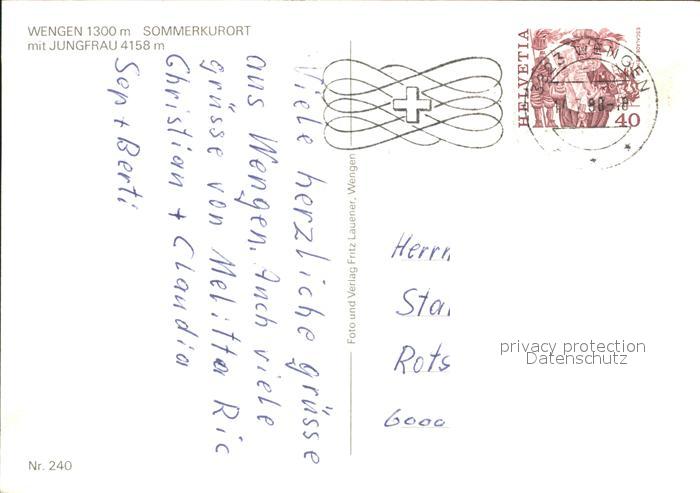 WENGEN 1300 m SOMMERKURORT
mit JUNGFRAU 4158 m
Viele herzliche grüsse
aus Wengen. Auch viele
grüsse von Melitta Ric
Christian + Claudia
Sep + Berti
Foto und Verlag Fritz Lauener, Wengen
HELVETIA
ESCALADE
40
3823 WENGEN
Herrn
Sta
Rots
6000
privacy protection
Datenschutz
Nr. 240